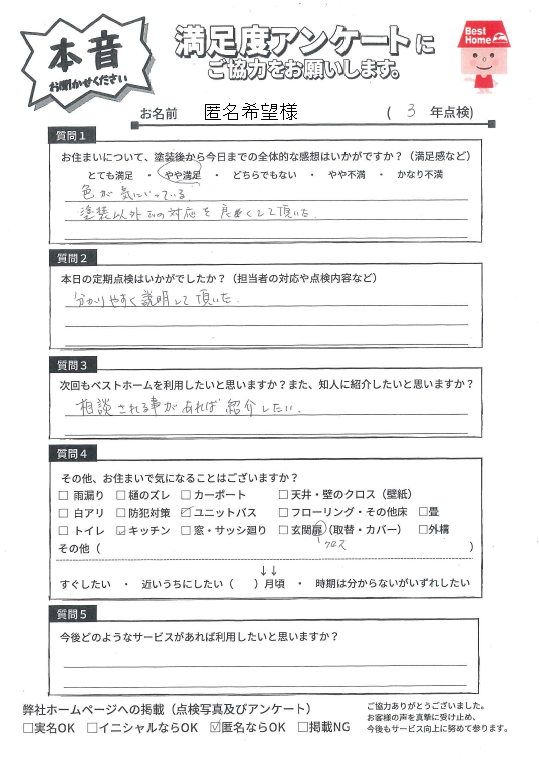 本音
お聞かせください
満足度アンケートに
ご協力をお願いします。
Best
Home
お名前 匿名希望様 ( 3 年点検)
質問1
お住まいについて、塗装後から今日までの全体的な感想はいかがですか？（満足感など）
とても満足 ・ やや満足 ・ どちらでもない ・ やや不満 ・ かなり不満
色が気にいっている。
塗装以外での対応を良くして頂いた。
質問2
本日の定期点検はいかがでしたか？（担当者の対応や点検内容など）
分かりやすく説明して頂いた。
質問3
次回もベストホームを利用したいと思いますか？また、知人に紹介したいと思いますか？
相談される事があれば紹介したい。
質問4
その他、お住まいで気になることはございますか？
□ 雨漏り □ 樋のズレ □ カーポート □ 天井・壁のクロス（壁紙）
□ 白アリ □ 防犯対策 ☑ ユニットバス □ フローリング・その他床 □畳
□ トイレ ☑ キッチン □ 窓・サッシ廻り □ 玄関扉（取替・カバー） □外構
その他（ クロス ）
↓↓
すぐしたい ・ 近いうちにしたい（ ）月頃 ・ 時期は分からないがいずれしたい
質問5
今後どのようなサービスがあれば利用したいと思いますか？
弊社ホームページへの掲載（点検写真及びアンケート）
□実名OK □イニシャルならOK ☑匿名ならOK □掲載NG
ご協力ありがとうございました。
お客様の声を真摯に受け止め、
今後もサービス向上に努めて参ります。